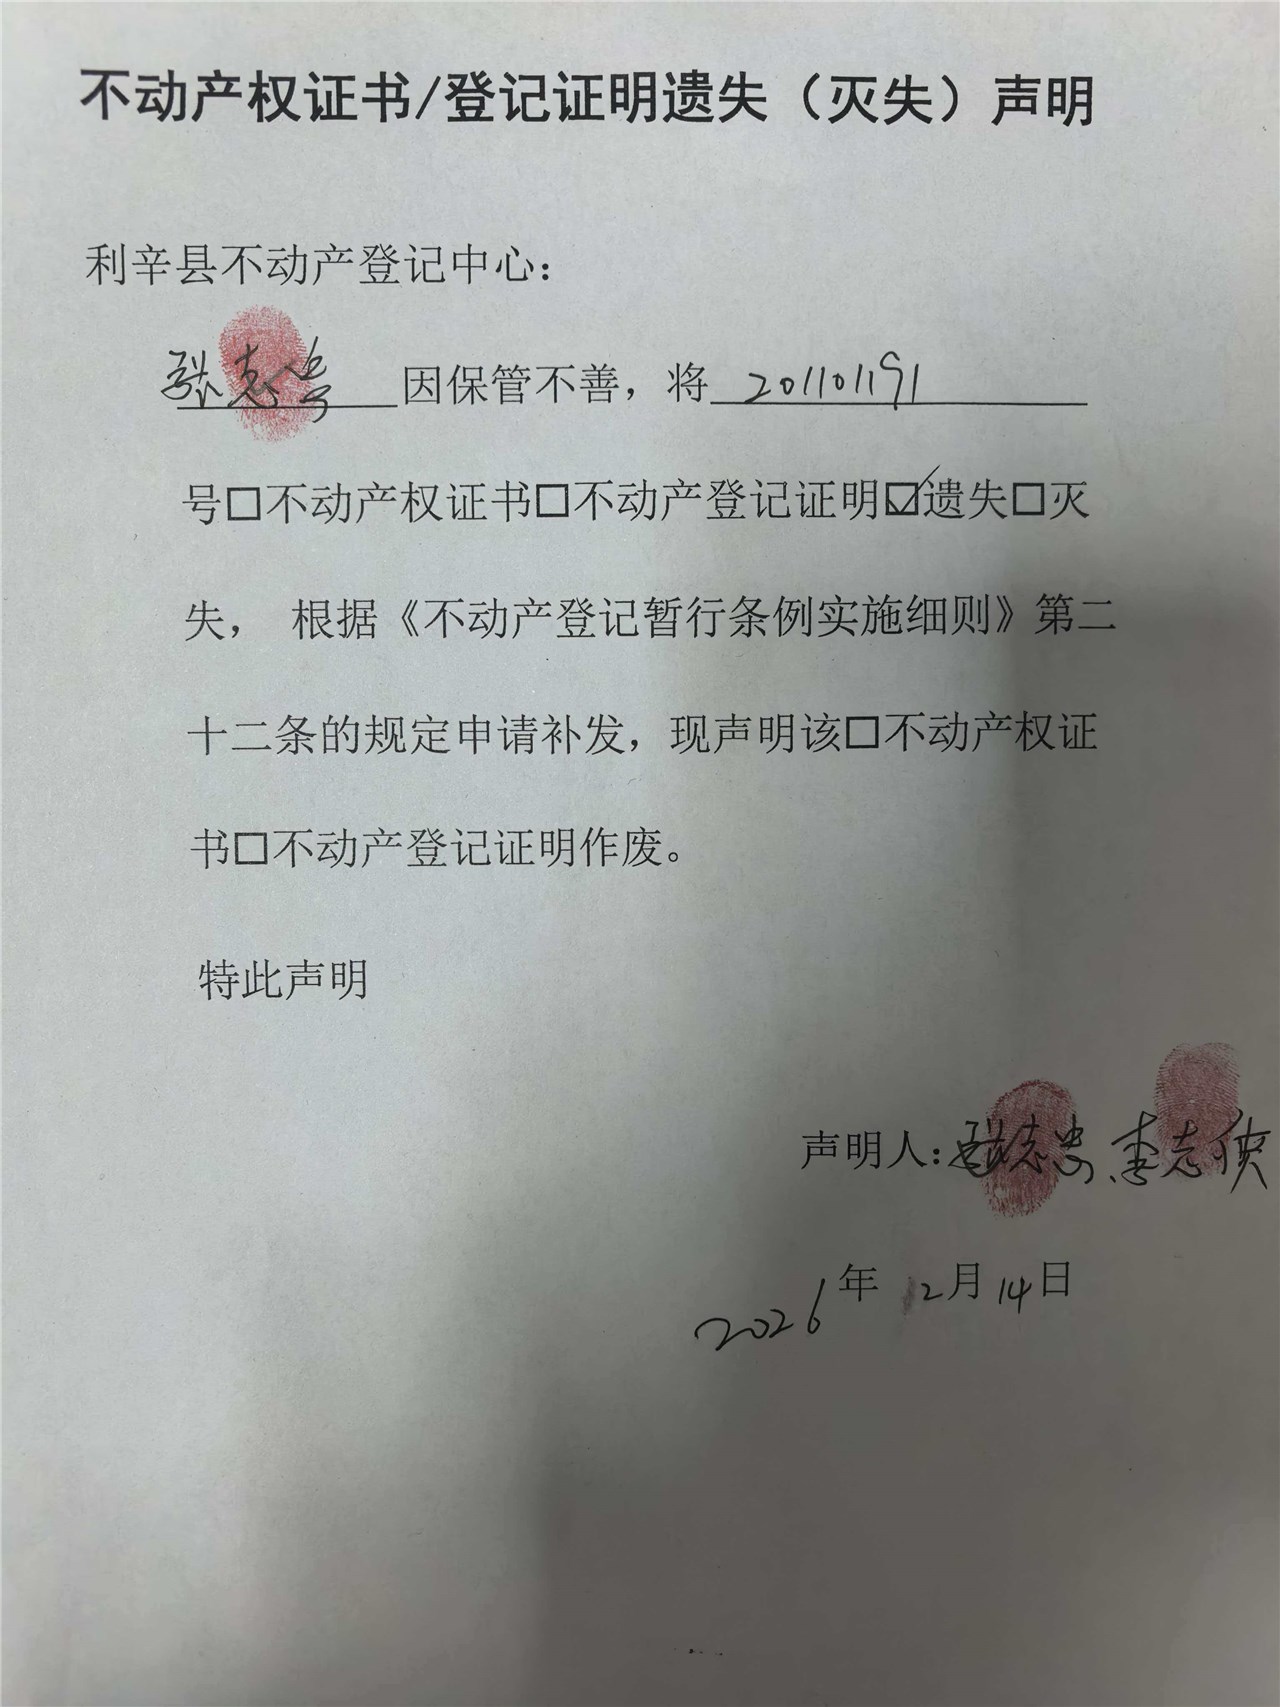 不动产权证书/登记证明遗失（灭失）声明
利辛县不动产登记中心：
张志 因保管不善，将 201101191
号□不动产权证书□不动产登记证明☑遗失□灭
失， 根据《不动产登记暂行条例实施细则》第二
十二条的规定申请补发，现声明该□不动产权证
书□不动产登记证明作废。
特此声明
声明人：张志忠 李志侠
2026年 2月14日